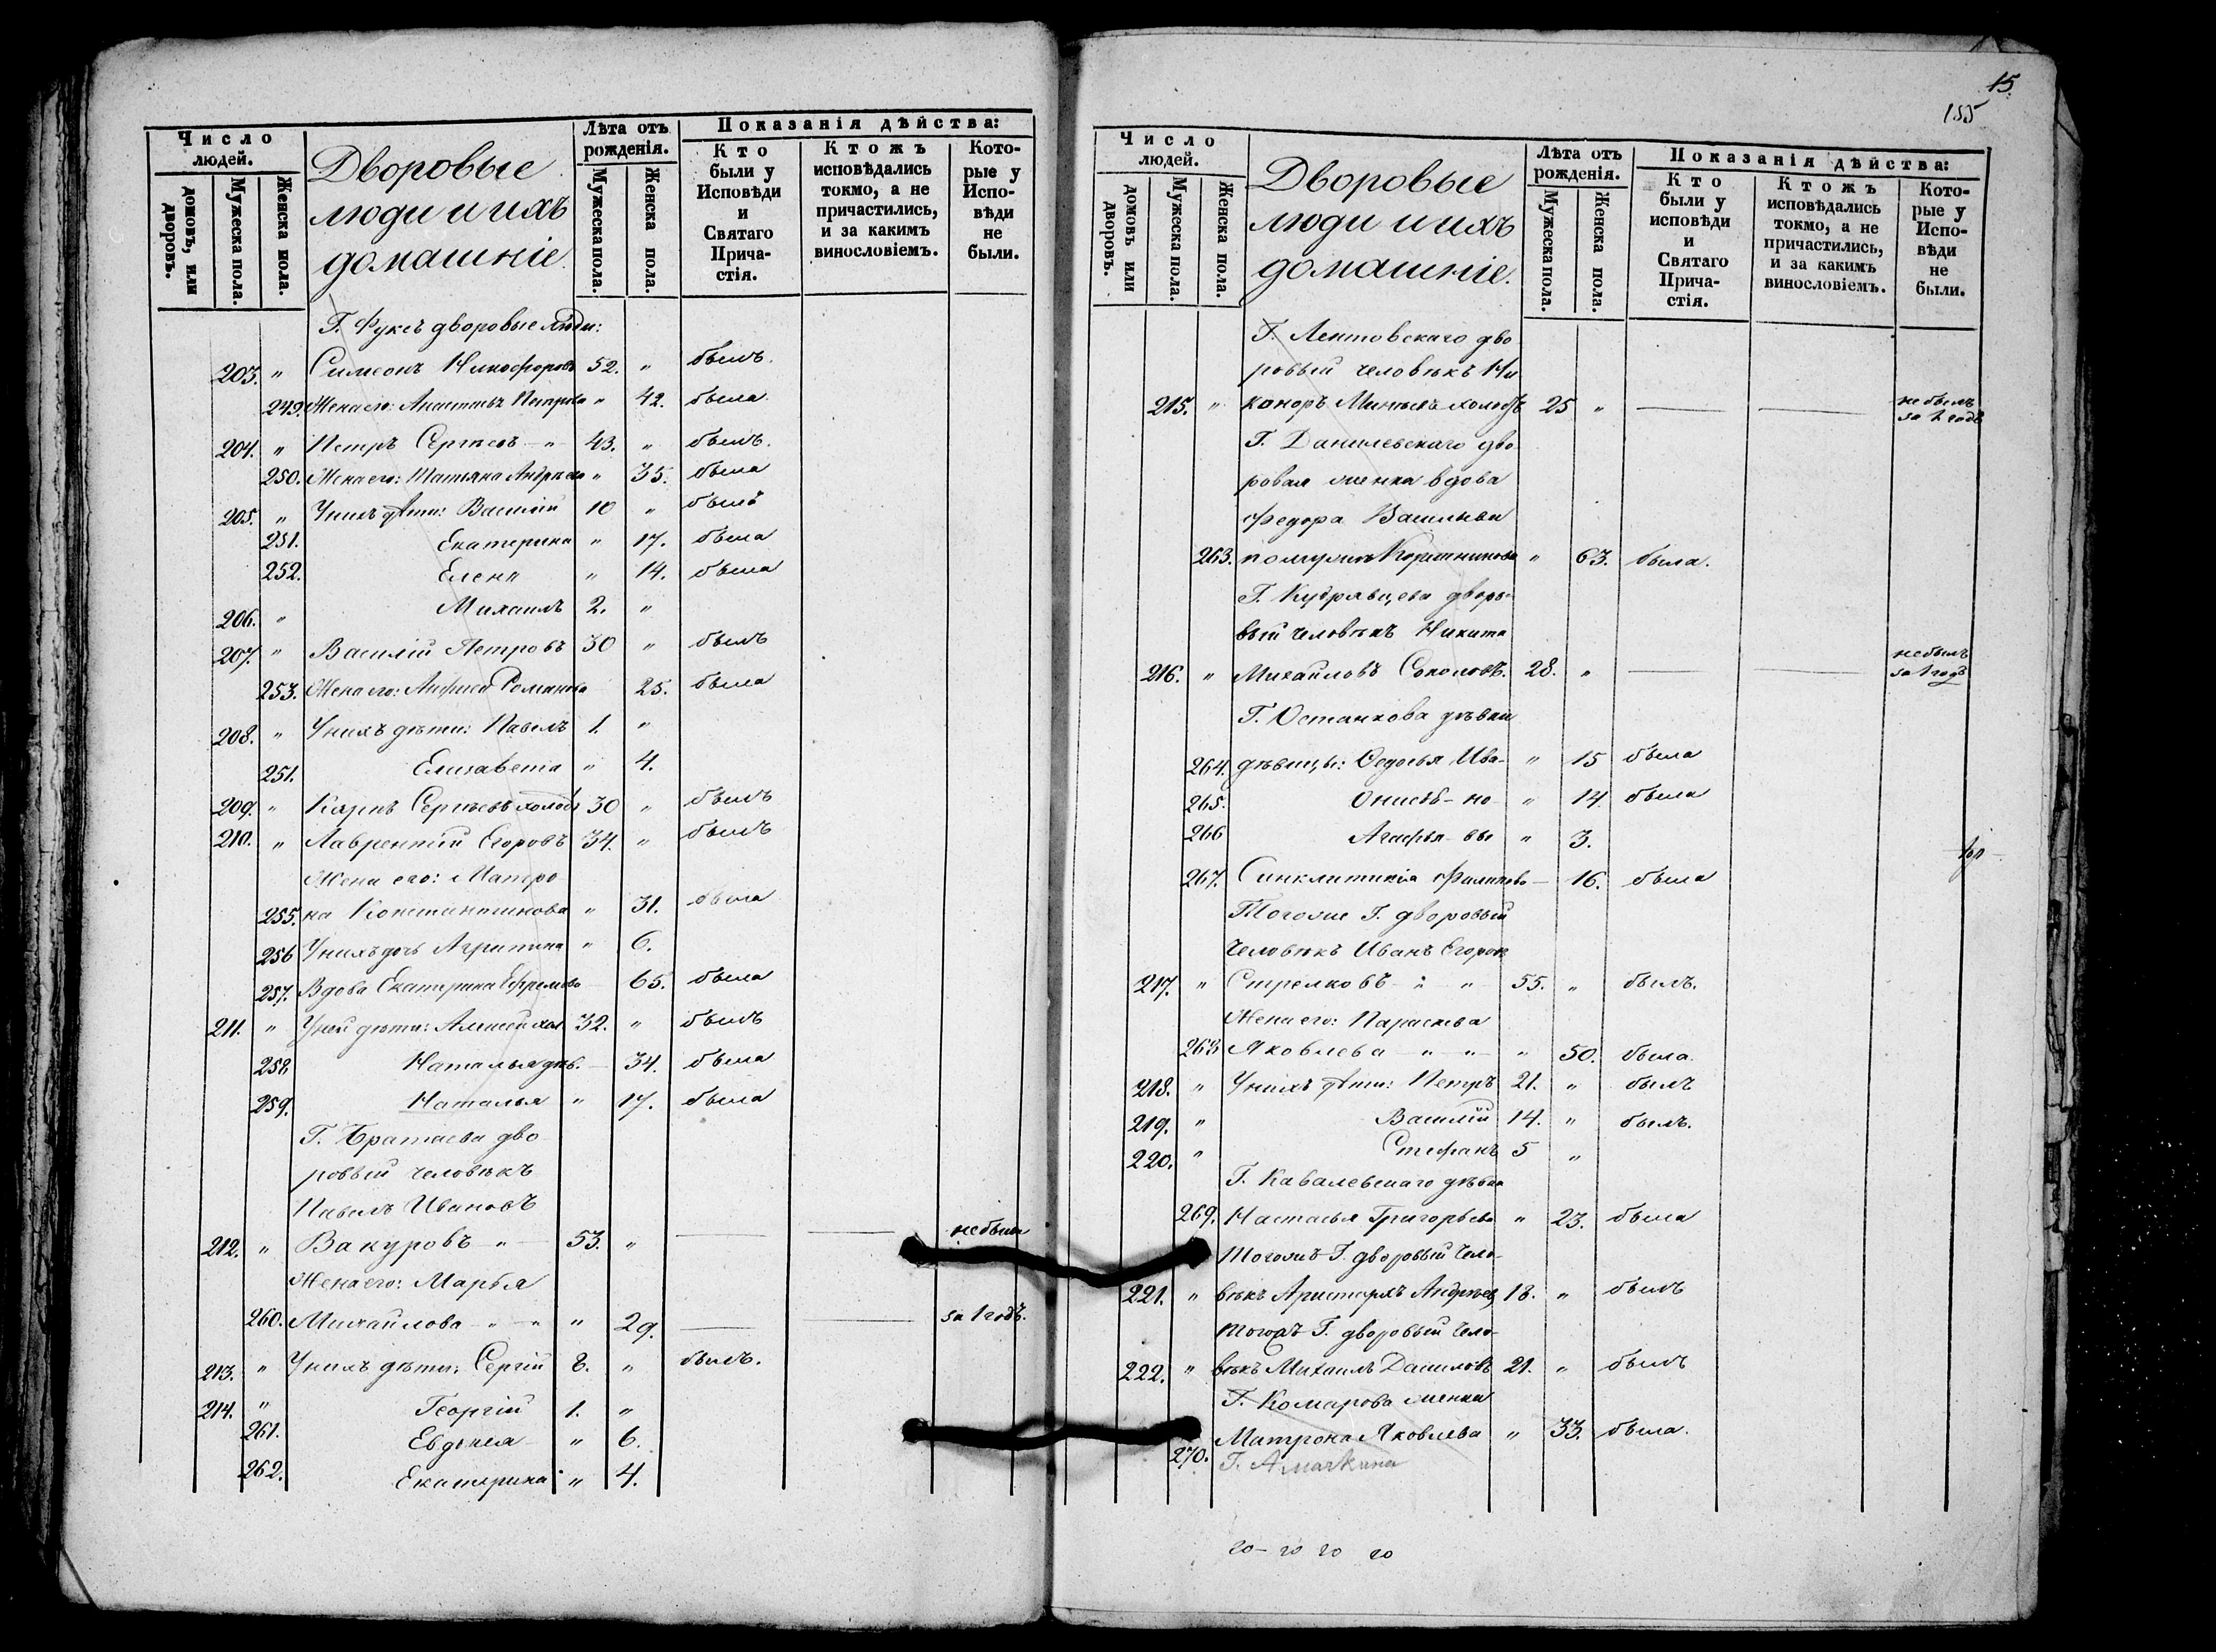 Число людей.
домовъ, или дворовъ.
Мужеска пола.
Женска пола.
Дворовые
люди и ихъ
домашніе.
Лѣта отъ рожденія.
Мужеска пола.
Женска пола.
Показанія дѣйства:
Кто были у Исповѣди и Святаго Прича-стія.
Ктожъ исповѣдались токмо, а не причастились, и за какимъ винословіемъ.
Кото-рые у Испо-вѣди не были.
Г. Фуксъ дворовые люди:
203. " Симеонъ Никифоровъ 52. " былъ.
249. Жена его: Анастасья Петрова " 42. была.
204. " Петръ Сергѣевъ - " 43. " былъ.
250. Жена его: Татьяна Андрѣева " 35. была
205. " Унихъ дѣти: Василій 10 " былъ
251. Екатерина " 17. была
252. Елена " 14. была
206. " Михаилъ 2. "
207. " Василій Петровъ 30 " былъ
253. Жена его: Романова 25. была
208. " Унихъ дѣти: Павелъ 1. "
251. Елизавета " 4.
209. " Карпъ Сергѣевъ холостъ 30 " былъ
210. " Лаврентій Егоровъ 34. " былъ
Жена его: Матро
255. на Константинова " 31. была
256 Унихъ дочь Агрипина " 6.
257. Вдова Екатерина Ефремова 65. была
211. " Уней дѣти: Алексей хол 32. " былъ
258. Наталья дѣв. - 34. была
259. Наталья " 17. была
Г. Братаева дво
ровый человѣкъ
Павелъ Ивановъ
212. " Вакуровъ " 53. " — — небыли
Жена его: Марья
260. Михайлова - " - " " 29. — — за 1 годъ.
213. " Унихъ дѣти: Сергій 8. " былъ.
214. " Георгій 1. "
261. Евдокія " 6.
262. Екатерина " 4.
15.
155
Число людей.
домовъ или дворовъ.
Мужеска пола.
Женска пола.
Дворовые
люди и ихъ
домашніе.
Лѣта отъ рожденія.
Мужеска пола.
Женска пола.
Показанія дѣйства:
Кто были у исповѣди и Святаго Прича-стія.
Ктожъ исповѣдались токмо, а не причастились, и за какимъ винословіемъ.
Кото-рые у Испо-вѣди не были.
Г. Лентовскаго дво
ровый человѣкъ Ни
215. " каноръ холостъ 25 " — — не былъ за 1 годъ
Г. Данилевскаго дво
ровая женка вдова
Федора Васильева
263. помужѣ " 63. была.
Г. Кудрявцева дворо-
вый человѣкъ Никита
216. " Михайловъ Соколовъ. 28. " — — небылъ за 1 годъ
Г. Останкова дѣвки
264. дѣвицы: Федосья Ива- " 15 была
265. - но- " 14. была
266 Агафья - вы " 3.
267. Синклитикія - 16. была
Тогоже Г. дворовый
человѣкъ Иванъ Егоров
217. " Стрелковъ - " - " 55. " былъ.
Жена его: Параскева
268 Яковлева - " - " " 50. была.
218. " Унихъ дѣти: Петръ 21. " былъ
219. " Василій 14. " былъ.
220. " Стефанъ 5 "
Г. Кавалевскаго дѣвка
269. Настасья Григорьева " 23. была
Тогожъ Г. дворовый чело-
221. " вѣкъ Аристархъ Андрѣев 18. " былъ
Тогожъ Г. дворовый чело-
222. " вѣкъ Михаилъ Даниловъ 21. " былъ
Г. Комарова женка
270. Матрона Яковлева " 33. была.
Г.